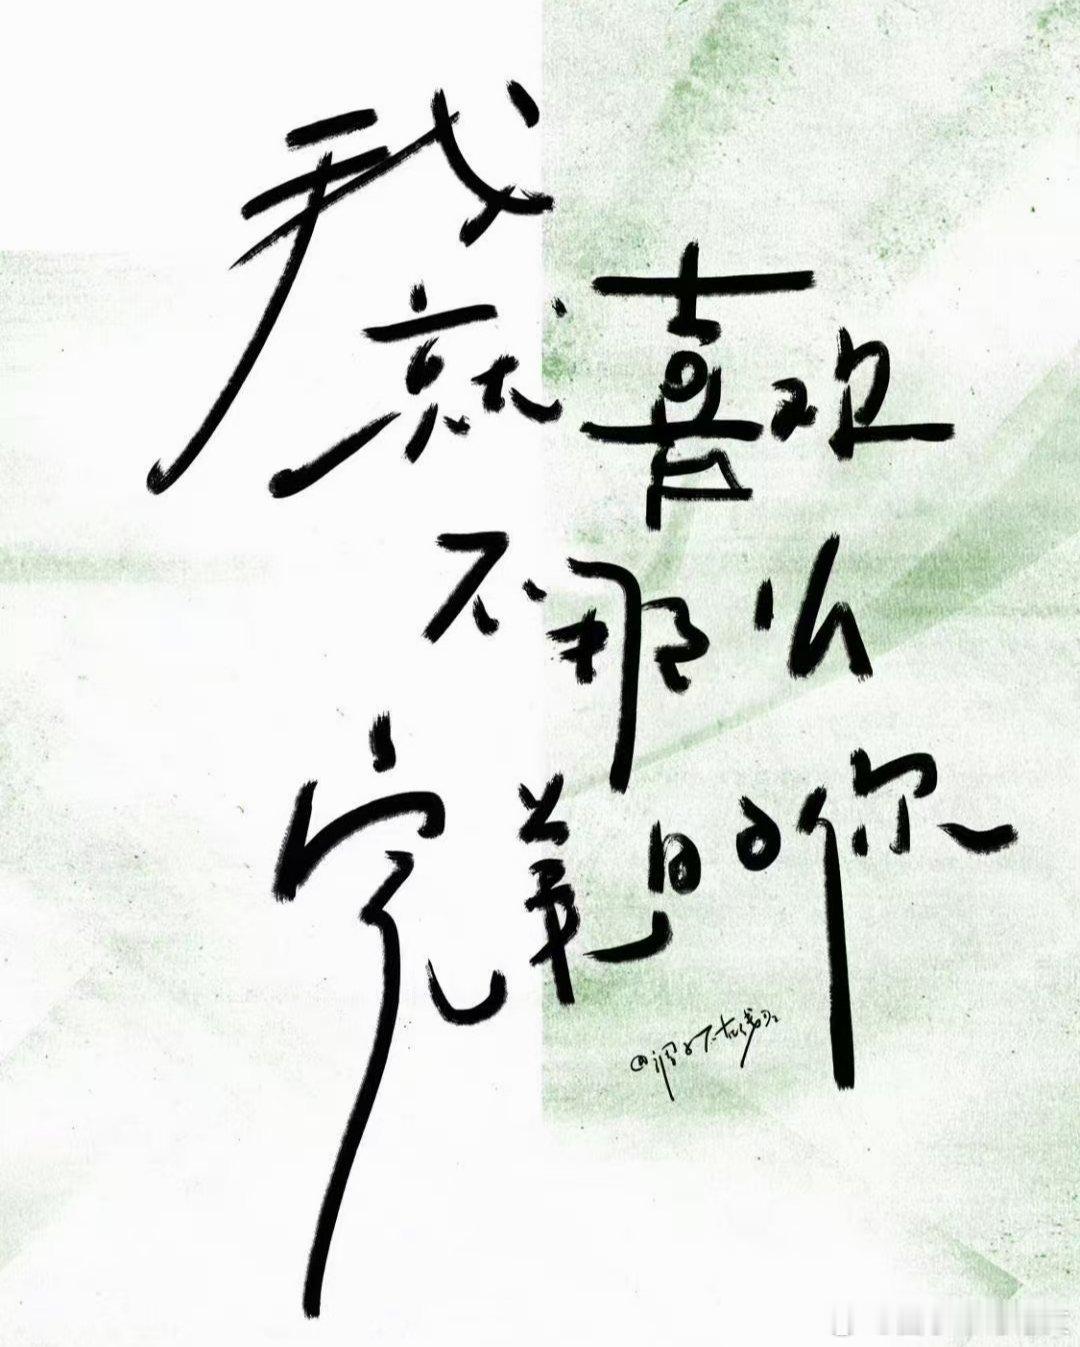 我就喜欢
不那么
完美的你